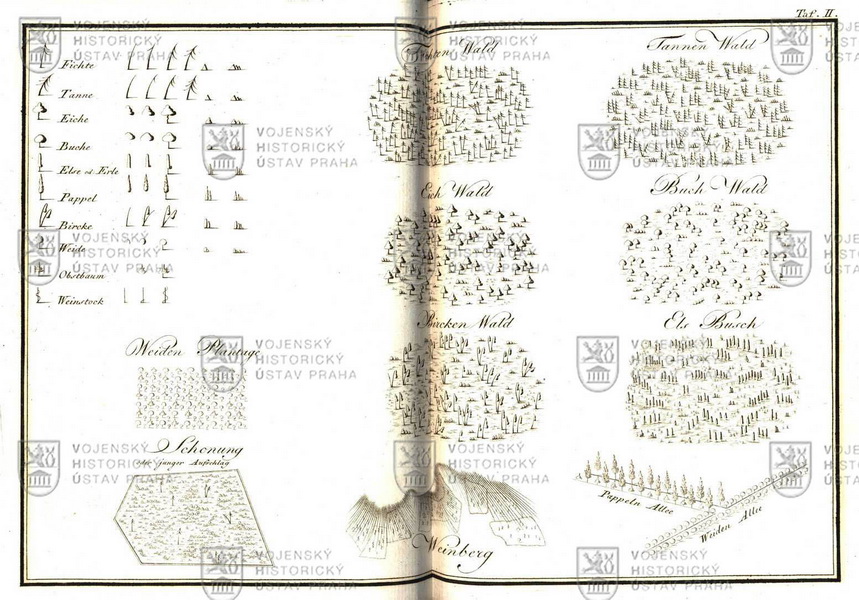 Taf. II.
Fichte
Tanne
Eiche
Buche
Else od. Erle
Pappel
Bircke
Weide
Obstbaum
Weinstock
Weiden Plantage
Schonung
oder junger Aufschlag
Fichten Wald
Eich Wald
Bircken Wald
Weinberg
Tannen Wald
Buch Wald
Els Busch
Pappeln Allee
Weiden Allee
VOJENSKÝ
HISTORICKÝ
ÚSTAV PRAHA